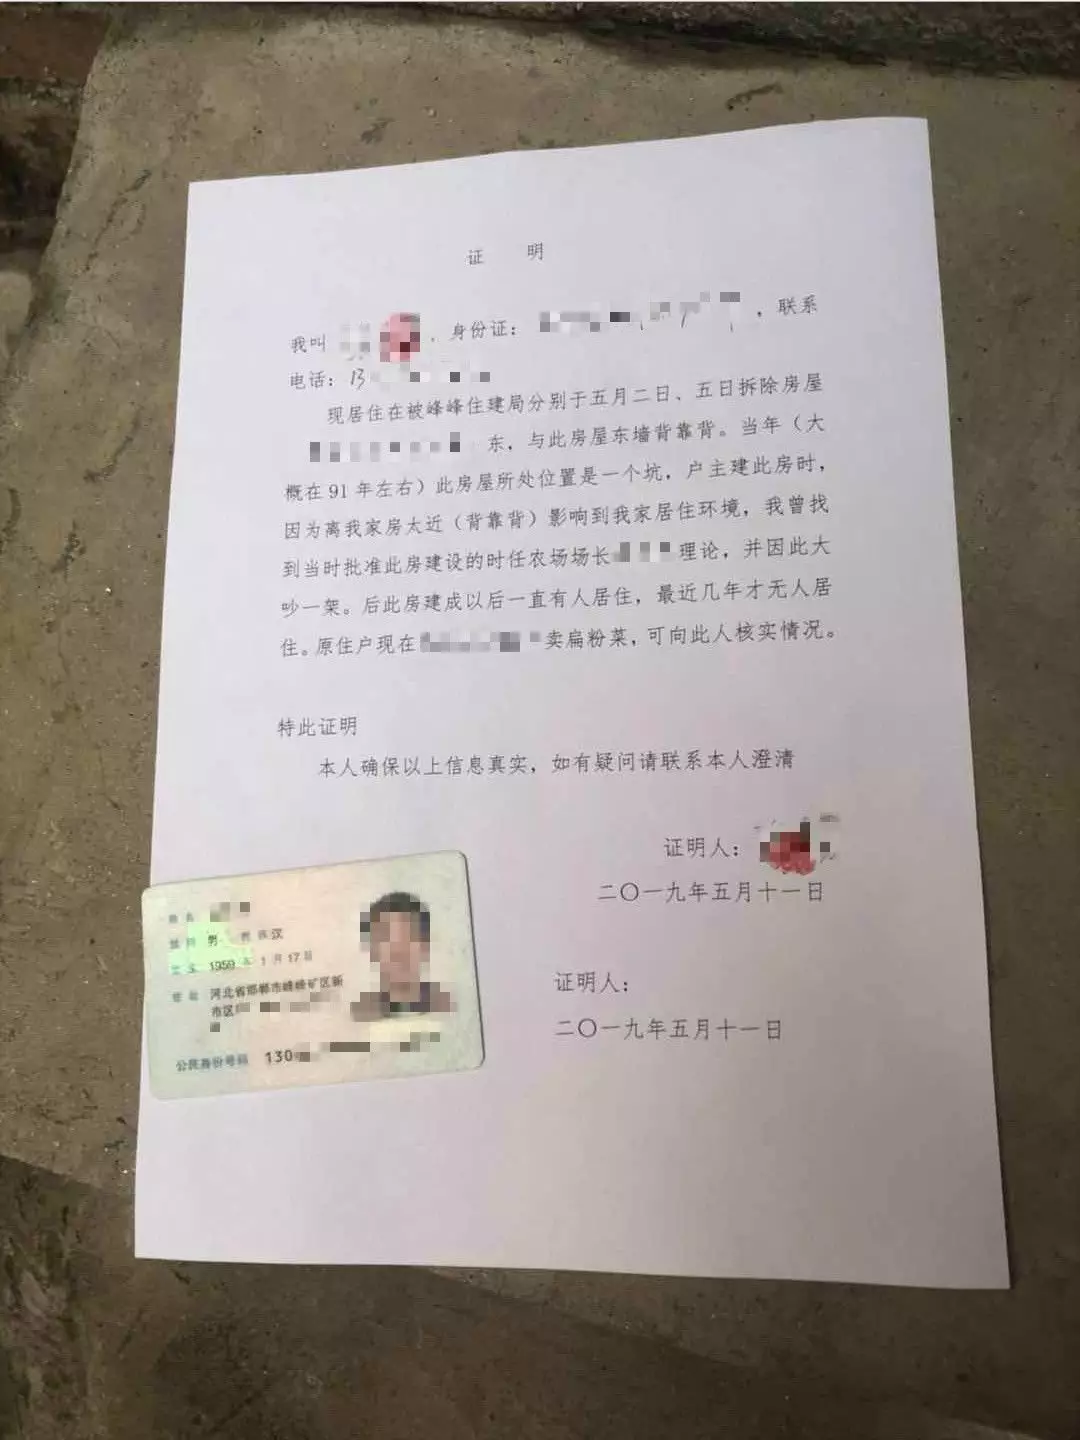 证 明
我叫 ，身份证： ，联系
电话：13
现居住在被峰峰住建局分别于五月二日、五日拆除房屋
东，与此房屋东墙背靠背。当年（大
概在91年左右）此房屋所处位置是一个坑，户主建此房时，
因为离我家房太近（背靠背）影响到我家居住环境，我曾找
到当时批准此房建设的时任农场场长 理论，并因此大
吵一架。后此房建成以后一直有人居住，最近几年才无人居
住。原住户现在 卖扁粉菜，可向此人核实情况。
特此证明
本人确保以上信息真实，如有疑问请联系本人澄清
证明人：
二〇一九年五月十一日
证明人：
二〇一九年五月十一日
姓名
性别 男 民族 汉
出生 1959 年 1 月 17 日
住址 河北省邯郸市峰峰矿区新
市区
公民身份号码 130